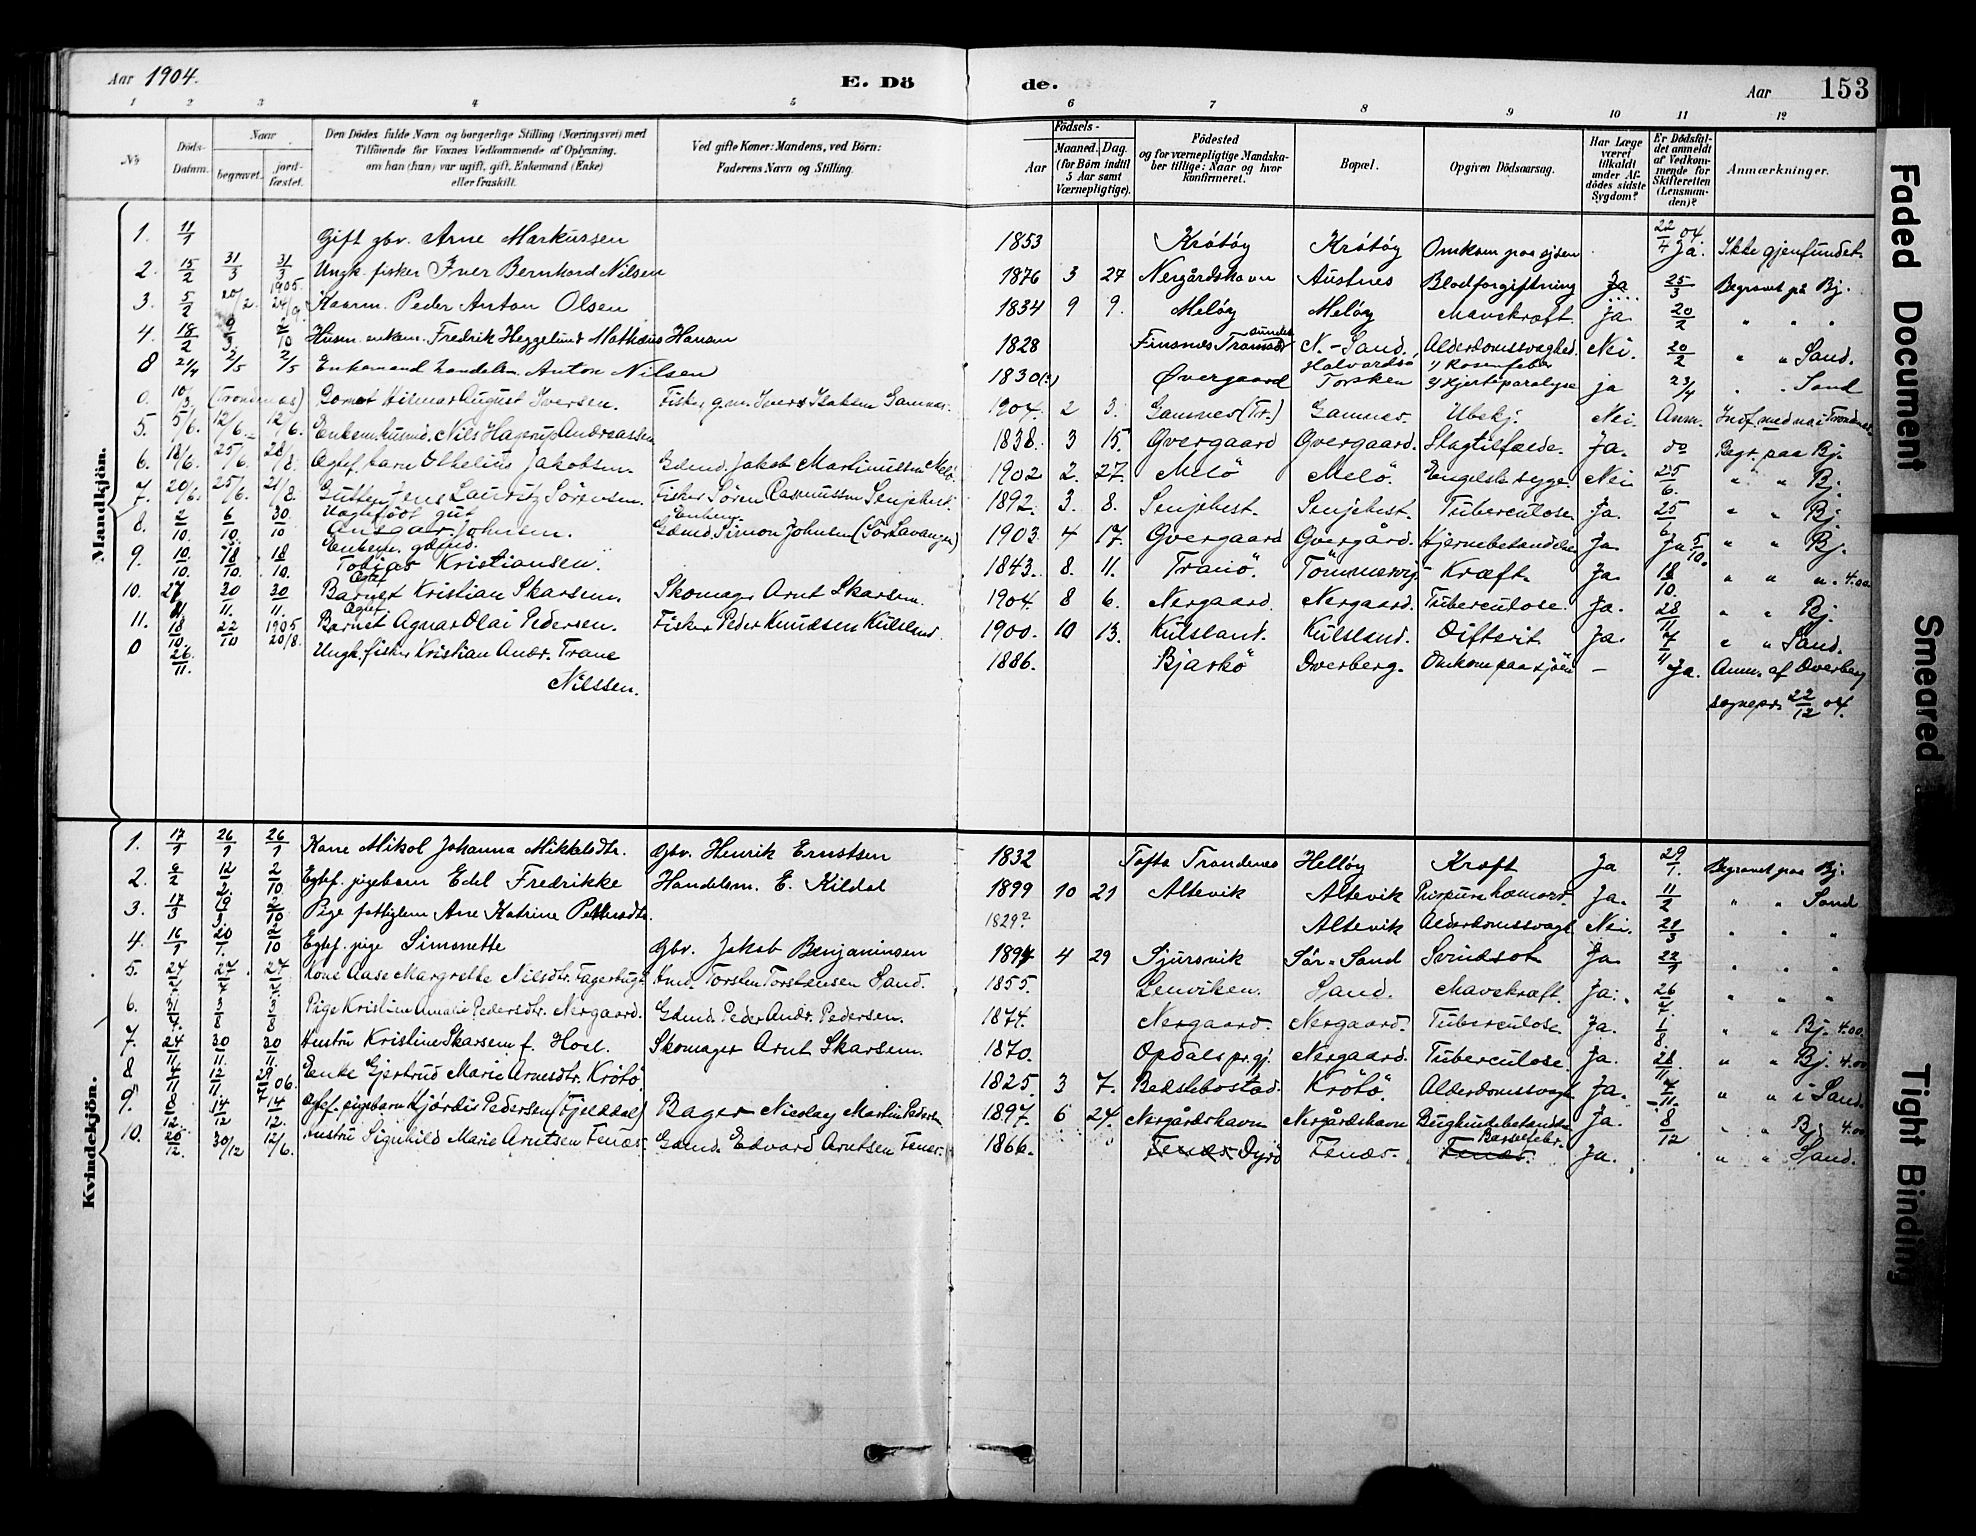 Aar 1904. E. Dö de. Aar 153
1 2 3 4 5 6 7 8 9 10 11 12
No Döds-Datum. Naar begravet. jordfæstet. Den Dödes fulde Navn og borgerlige Stilling (Næringsvei) med Tilföiende for Voxnes Vedkommende af Oplysning, om han (hun) var ugift, gift, Enkemand (Enke) eller fraskilt. Ved gifte Koner: Mandens, ved Börn: Faderens Navn og Stilling. Födsels- Aar Maaned. Dag. (for Börn indtil 5 Aar samt Værnepligtige). Födested og for værnepligtige Mandskaber tillige: Naar og hvor konfirmeret. Bopæl. Opgiven Dödsaarsag. Har Læge været tilkaldt under Afdödes sidste Sygdom? Er Dödsfaldet anmeldt af Vedkommende for Skifteretten (Lensmanden)? Anmærkninger.
Mandkjön.
1. 11/1 Gift gbr. Arne Markussen 1853 Krötöy Krötöy Omkom paa sjöen 22/4 04 Ja. Ikke gjenfundet.
2. 15/2 31/3 31/3 Ungk. fisker Iver Bernhard Nilsen 1876 3 27 Nergårdshavn Austnes Blodforgiftning Ja 25/3 Begravet på Bj.
3. 5/2 20/2. 1905. 24/9. Kaarm. Peder Anton Olsen 1834 9 9. Melöy Melöy Mavekræft. Ja. 20/2 " " "
4. 18/2 9/3. 2/10 Husm. enkem. Fredrik Heggelund Mathæus Hansen 1828 Finsnes Tranösundet N.-Sand. Alderdomssvaghed. Nei. 20/2 " " Sand.
8 21/4 2/5 2/5 Enkemand handelsm. Anton Nilsen 1830(?) Øvergaard Halvardsö Torsken 1) Rosenfeber 2) Hjerteparalyse ja 23/4 " " Sand
0. 10/3. (Trondenæs) Gamet Hilmar August Iversen. Fisker g.m. Ivers Isaksen Gamnes. 1904. 2 3. Gamnes (Tr.) Gamnes. Ubekj. Nei. Anm.
5. 5/6. 12/6. 12/6. Enkem. husmd. Nils Hagerup Andreassen 1838. 3 15. Gvergaard Gvergaard. Slagtilfælde. Ja. do Begr. paa Bj.
6. 18/6. 25/6. 28/8. Ægtef. barn Othelius Jakobsen. Gdmd. Jakob Martinussen Melö. 1902 2. 27. Melö Melö. Engelsk syge. Nei 25/6. " " Bj.
7. 20/6. 25/6. 21/8. Gutten Jens Lauritz Sörensen. Fisker Sören Rasmussen Senjehest. 1892. 3. 8. Senjehest. Senjehest. Tuberculose. Ja. 25/6 " " Bj.
8. 2/10. 6/10. 30/10 Uægtefödt gut Ansgar Johnsen. Enkem. Gdmd. Simon Johnsen (Sörsavangen) 1903. 4 17. Gvergaard Gvergård. Hjernebetændelse Ja. Ja 5/10. " " Bj.
9. 10/10. 18/10. 18/10. Enkem. gdmd. Tobias Kristiansen. 1843. 8. 11. Tranö. Tömmervig Kræft. Ja. 18/10. " " " 4.00
10. 27/11 30/11. 30/11. Ægtef. Barnet Kristian Skarsem. Skomager Arnt Skarsem. 1904. 8 6. Nergaard. Nergaard. Tuberculose. Ja. 28/11 " " Bj.
11. 18/10. 22/10 1905 20/8. Ægtef. Barnet Agnar Olai Pedersen. Fisker Peder Knudsen Kulsland. 1900. 10 13. Kulsland. Kulsland. Difterit Ja. " " Sand.
0 26/11. Ungk. fisker Kristian Andr. Trane Nilssen. 1886. Bjarkö Dverberg. Omkom paa sjöen — Ja. Anm. af Dverberg
sognepr. 22/12 04.
Kvindekjön.
1. 17/1 26/1 26/1 Kone Mikol Johanna Mikkelsdtr. Gbr. Henrik Ernstsen 1832 Tofta Trondenes Hellöy Kræft Ja 29/1. Begravet paa Bj.
2. 2/2 12/2. 2/10 Egtef. pigebarn Edel Fredrikke Handelsm. E. Kildal 1899 10 21 Altevik Altevik Purpura hæmorr. Ja. 11/2 " " Sand
3. 17/3 19/3 2/10 Pige fattiglem Ane Katrine Pettersdtr. 1829? Altevik Alderdomssvagh. Nei. 21/3 " " "
4. 16/1 20/1. 2/10 Egtef. pige Simonette Gbr. Jakob Benjaminsen 1894 4 29 Sjursvik Sör-Sand Svindsot Ja. 22/1 " " "
5. 24/4 27/4 27/4 Kone Aase Margrethe Nilsdtr. Fagerhaug Kmd. Torsten Torstensen Sand. 1855. Lenviken. Sand. Mavekræft. Ja. 26/4 " " "
6. 3/8 3/8 Pige Kristine Amalie Pedersdtr. Nergaard. Gdmd. Peder Andr. Pedersen. 1874. Nergaard. Nergaard. Tuberculose Ja. 1/8. " " Bj. 4.00.
7. 24/11. 30/11. 30/11. Hustru Kristine Skarsem f. Hoel. Skomager Arnt Skarsem. 1870. Opdals pr.gj. Nergaard. Tuberculose. Ja. 28/11 " " Bj. 4.00
8 4/11 12/11. Enke Gjertrud Marie Arnesdtr. Krötö. 1825. 3 7. Bedslebostad. Krötö. Alderdomssvagh. Ja. 7/11. " " i Sand.
9. 8/12. 14/12 14/12. Egtef. pigebarn Hjördis Pedersen (Fjelddal) Bager Nicolay Martin Peders. 1897. 6 24. Nergårdshavn Nergårdshavn Bughindebetændelse Ja. 8/12 " Bj. 4.00
10. 20/12. 30/12 12/6. Hustru Signhild Marie Arntsen Fenæs. Gdmd. Edvard Arntsen Fenæs. 1866. Fenæs. Dyrö Fenæs. Barselfebr. Fenæs. Ja. " " Sand.
Faded Document
Smeared
Tight Binding